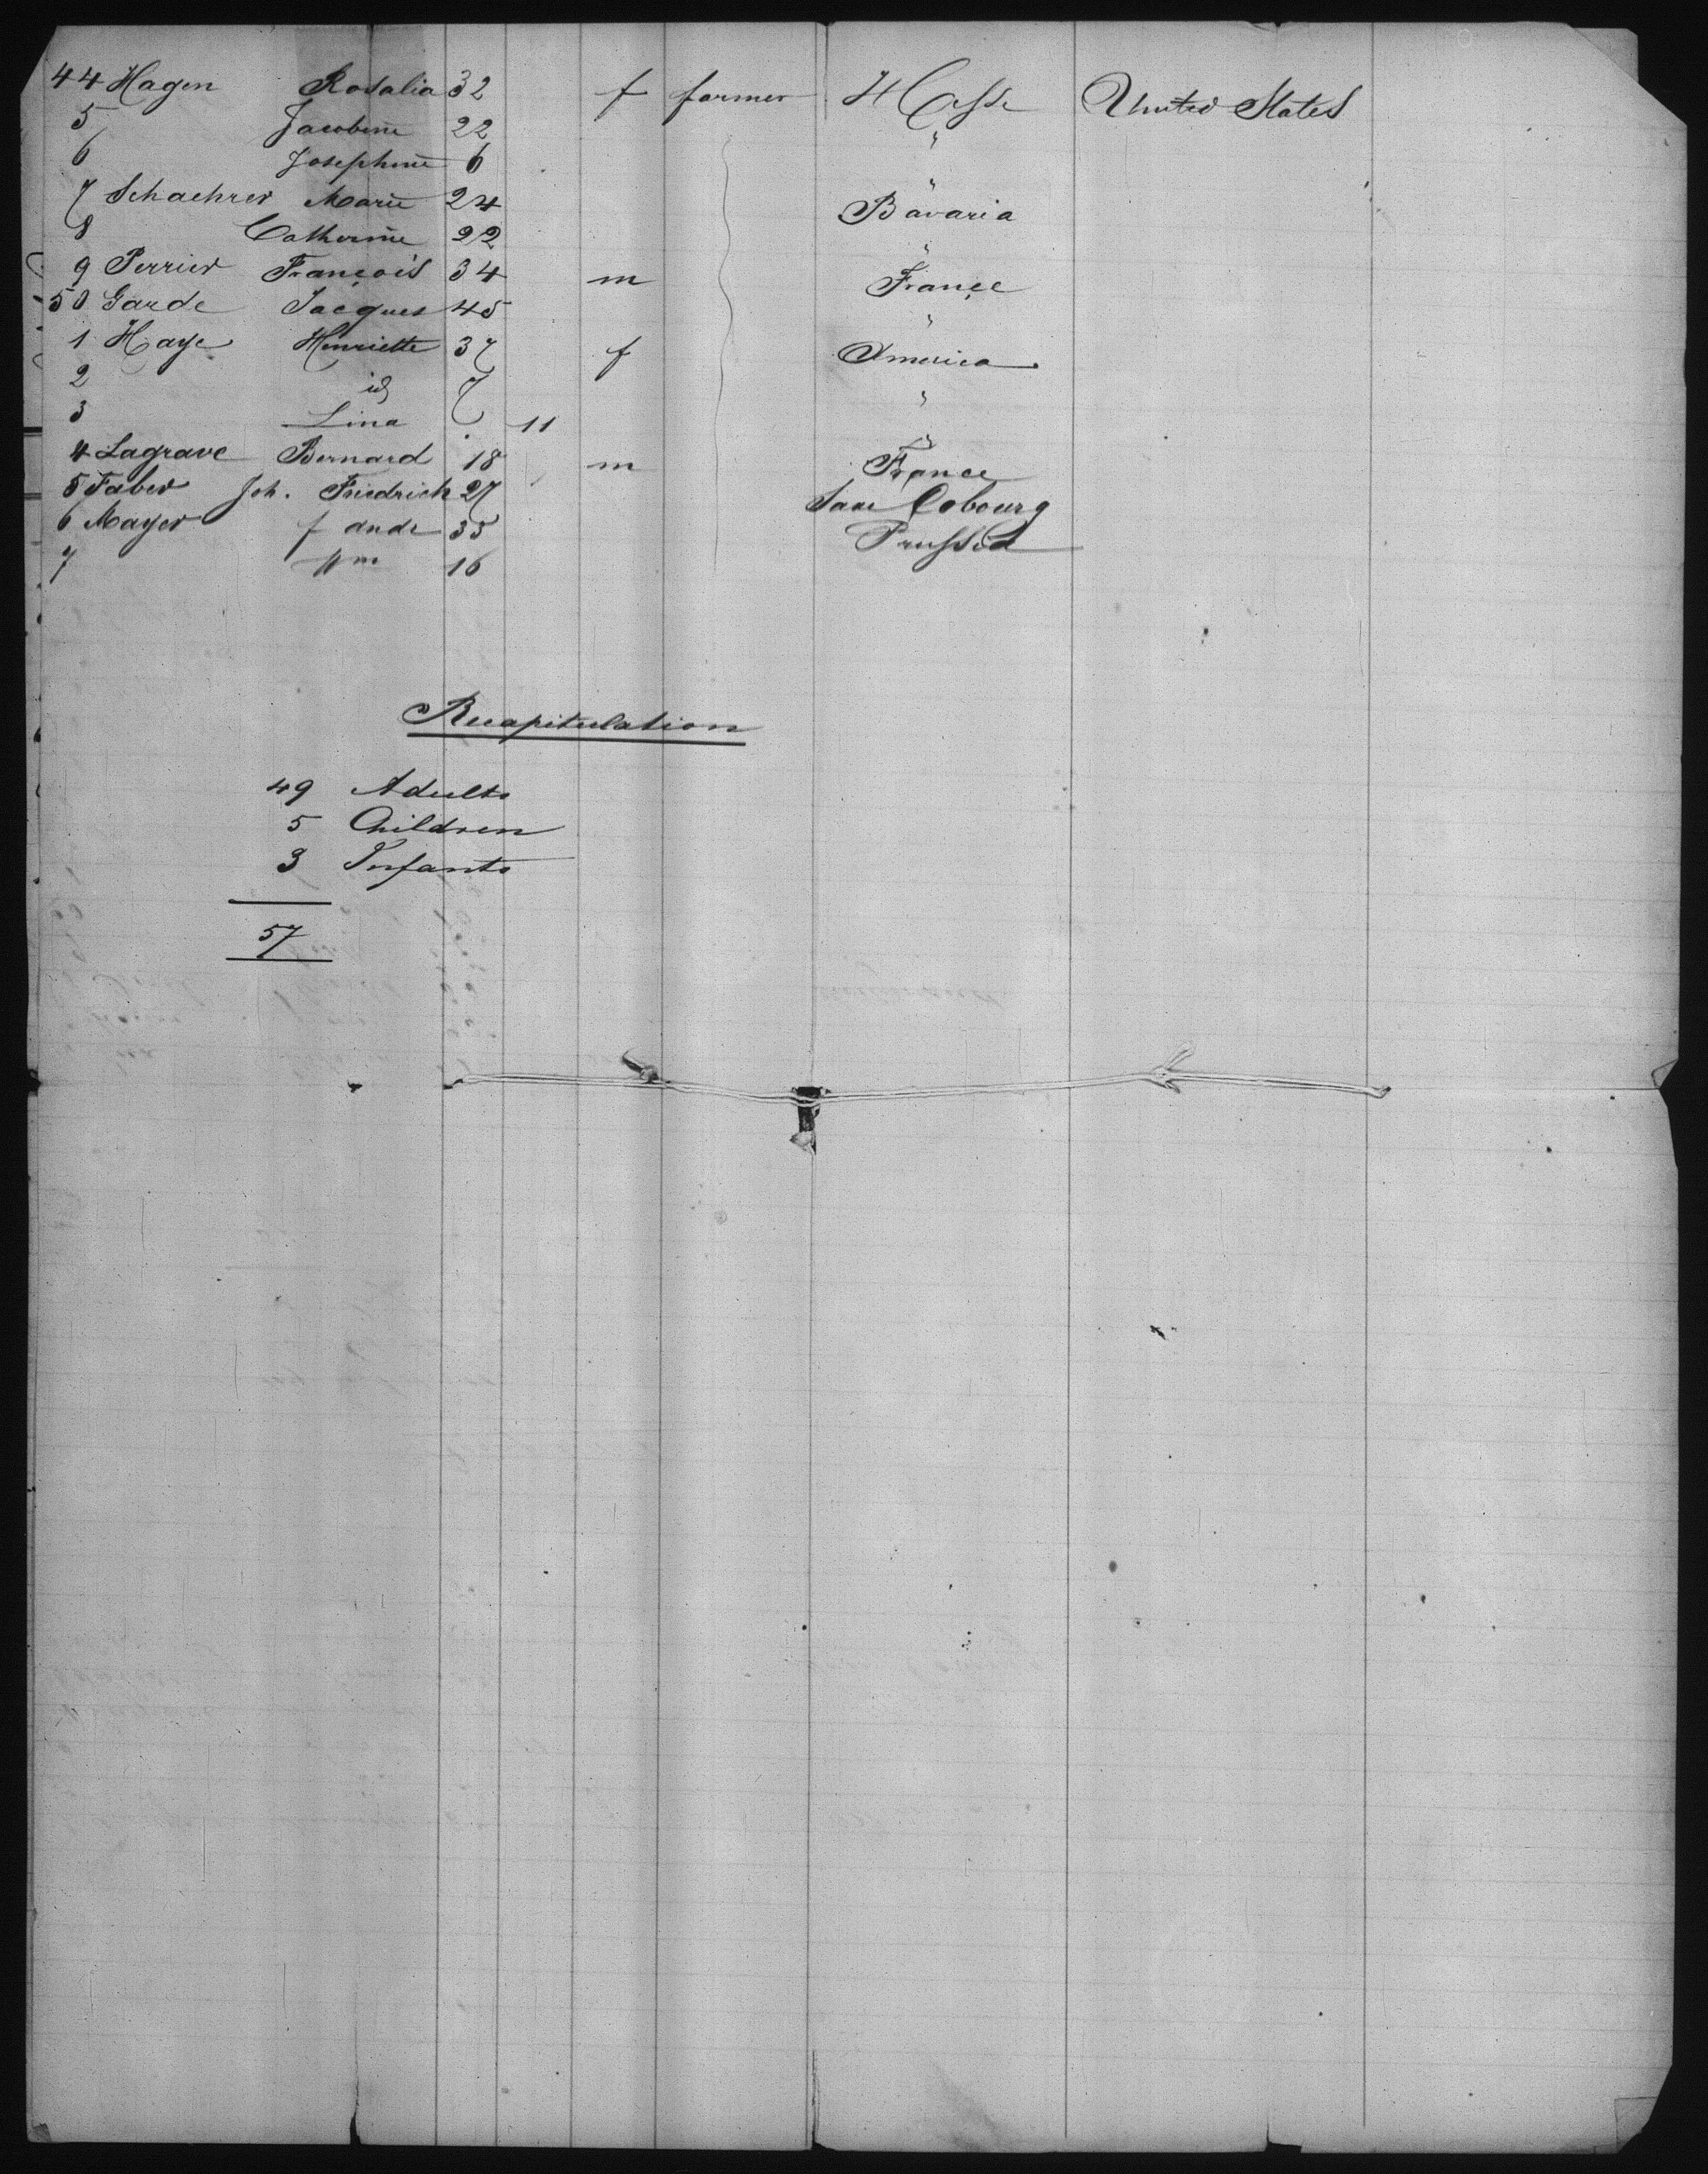 44 Hagen Rosalia 32 f farmer Hesse United States
5 Jacobine 22 "
6 Josephine 6 "
7 Schaehrer Marie 24 Bavaria
8 Catherine 22 "
9 Perrier François 34 m France
50 Garde Jacques 45 "
1 Haye Henriette 37 f America
2 id 7 "
3 Lina 11 "
4 Lagrave Bernard 18 m France
5 Faber Joh. Friedrich 27 Saxe Cobourg
6 Mayer 35 Prussia
7 Wm 16
Recapitulation
49 Adults
5 Children
3 Infants
57